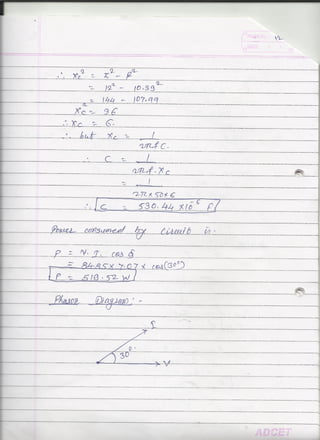 12
∴ Xc² = Z² - R²
= 12² - 10.39²
= 144 - 107.99
Xc² = 36
∴ Xc = 6.
∴ but Xc = 1 / 2πfC.
∴ C = 1 / 2πf.Xc
= 1 / 2π×50×6
∴ C = 530.44 ×10⁻⁶ F
Power consumed by circuit is.
P = V. I. cos φ
= 84.85 × 7.07 × cos(30°)
P = 519.52 W
Phasor Diagram:-
I
30°
V
ADCET